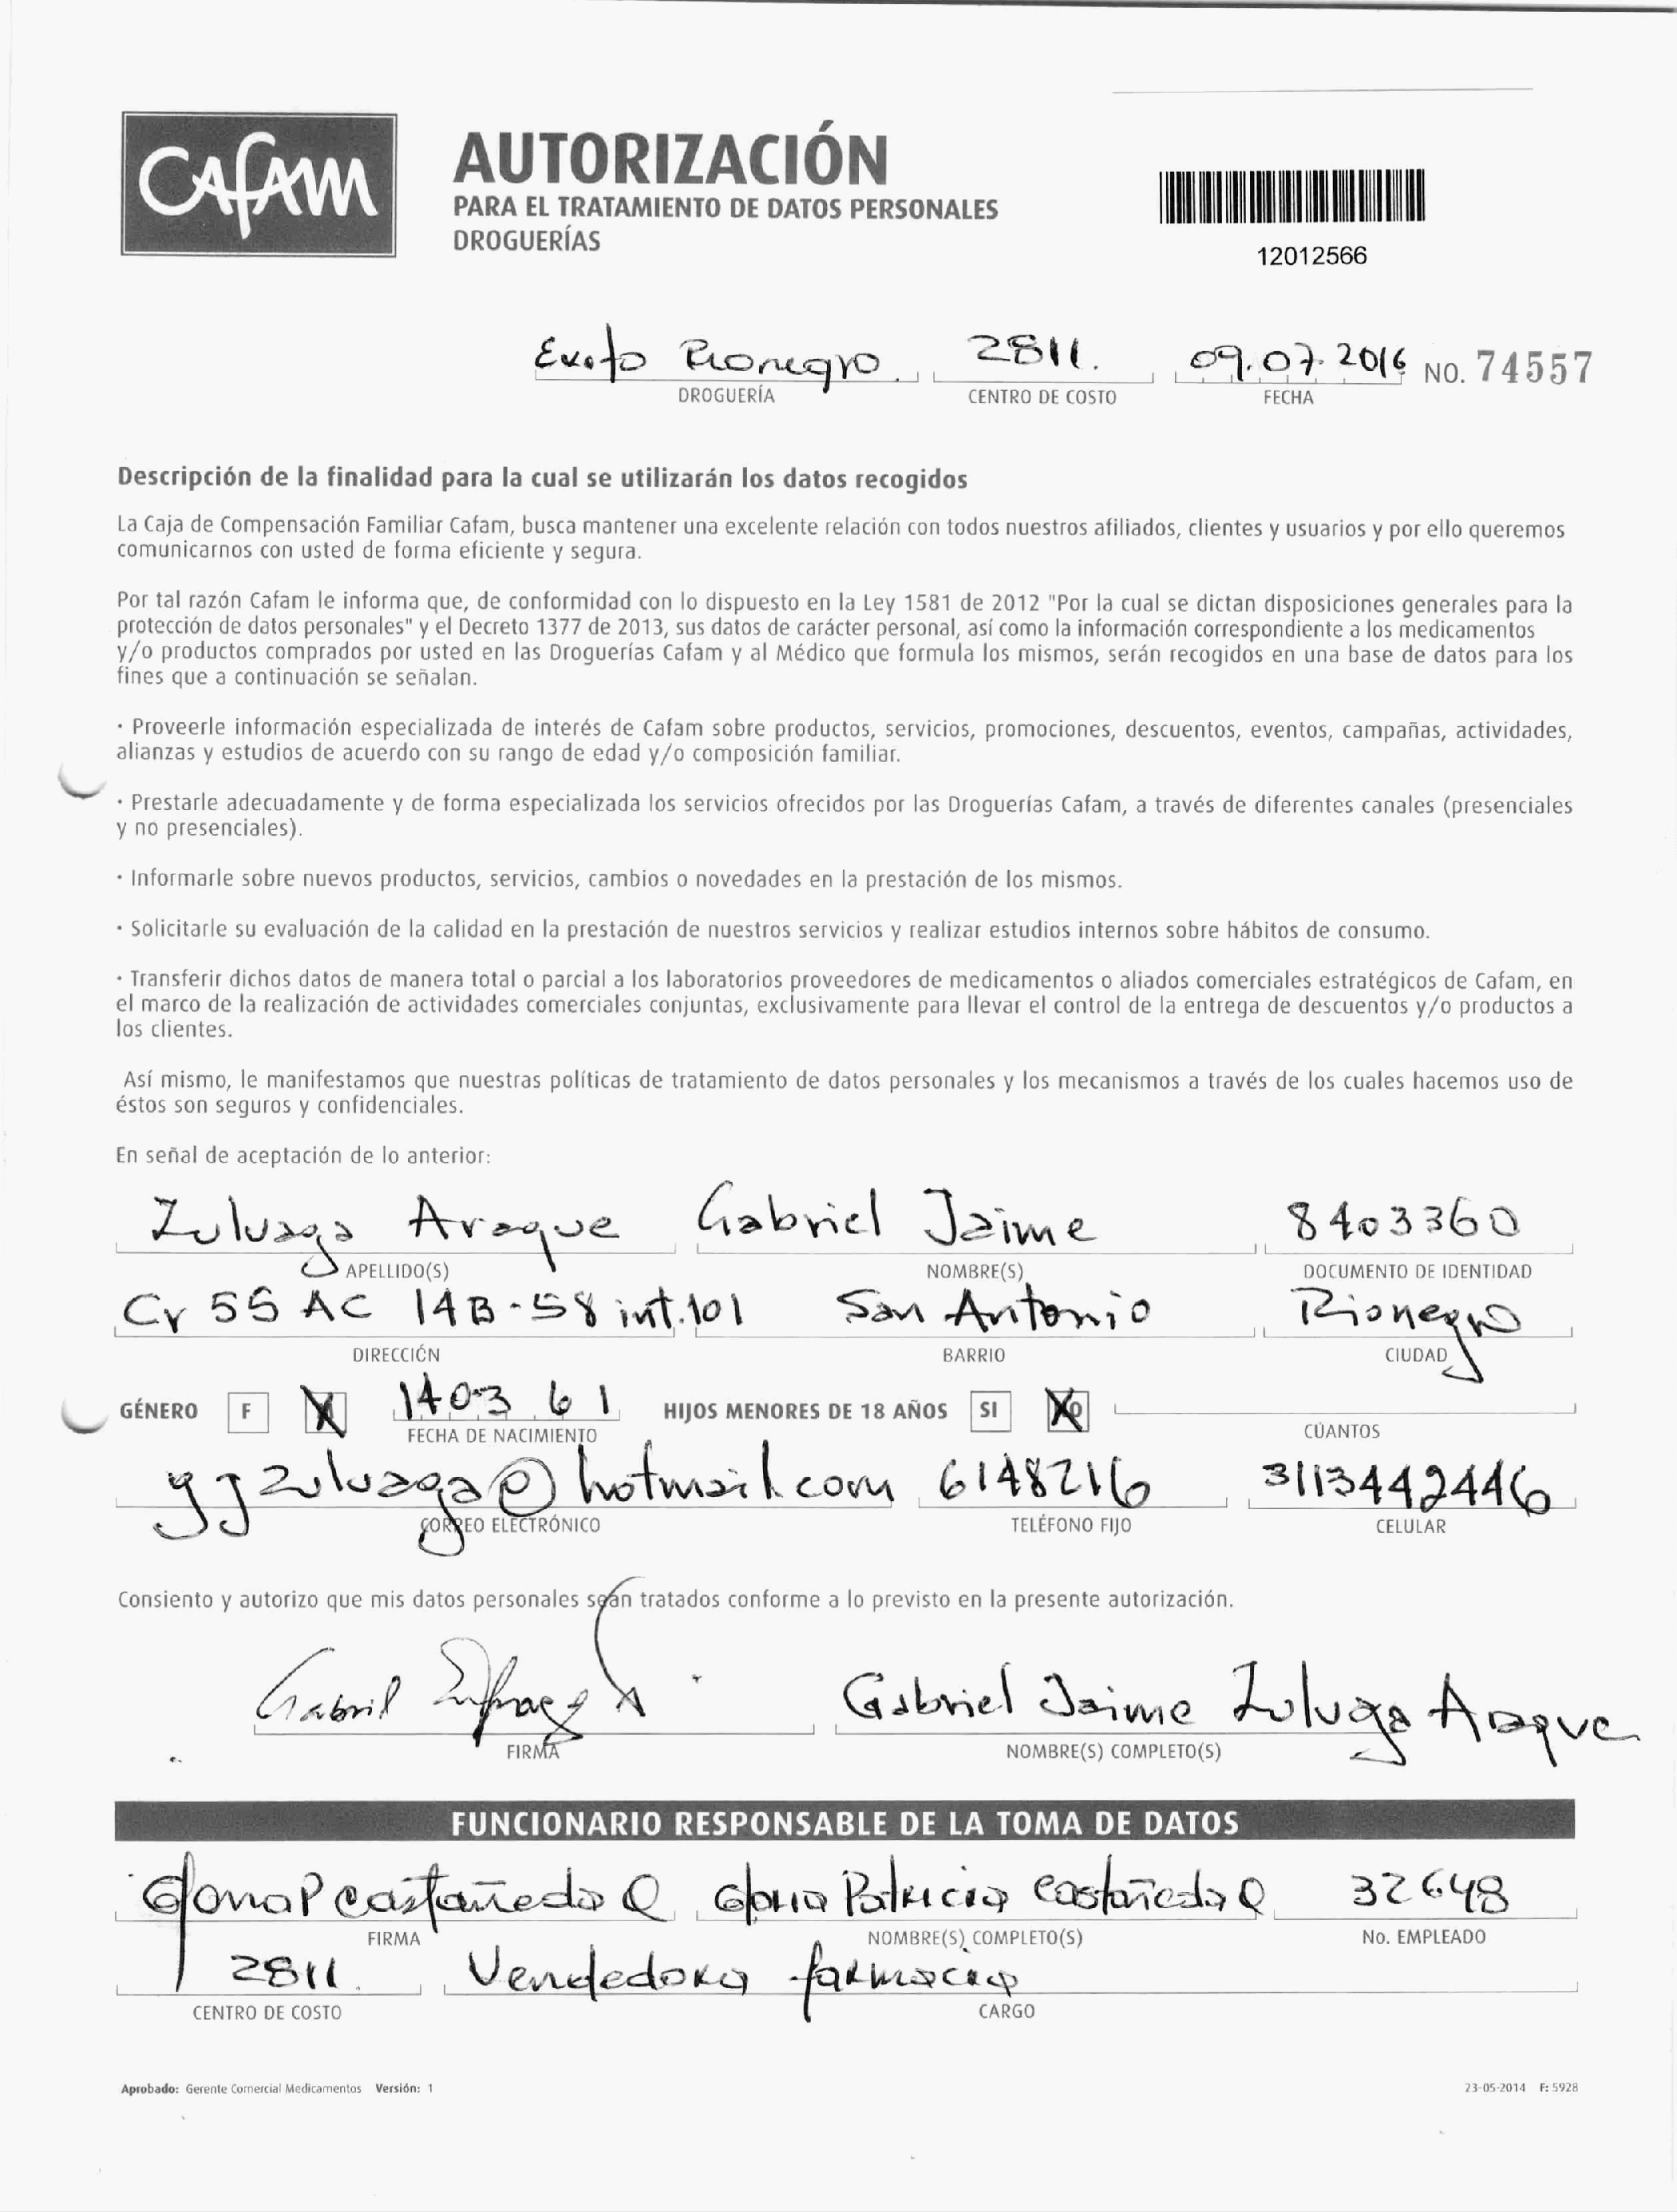 CAFAM
AUTORIZACIÓN
PARA EL TRATAMIENTO DE DATOS PERSONALES
DROGUERÍAS
12012566
Exito Rionegro. 2811. 09.07.2016 NO. 74557
DROGUERÍA CENTRO DE COSTO FECHA
Descripción de la finalidad para la cual se utilizarán los datos recogidos
La Caja de Compensación Familiar Cafam, busca mantener una excelente relación con todos nuestros afiliados, clientes y usuarios y por ello queremos
comunicarnos con usted de forma eficiente y segura.
Por tal razón Cafam le informa que, de conformidad con lo dispuesto en la Ley 1581 de 2012 "Por la cual se dictan disposiciones generales para la
protección de datos personales" y el Decreto 1377 de 2013, sus datos de carácter personal, así como la información correspondiente a los medicamentos
y/o productos comprados por usted en las Droguerías Cafam y al Médico que formula los mismos, serán recogidos en una base de datos para los
fines que a continuación se señalan.
· Proveerle información especializada de interés de Cafam sobre productos, servicios, promociones, descuentos, eventos, campañas, actividades,
alianzas y estudios de acuerdo con su rango de edad y/o composición familiar.
· Prestarle adecuadamente y de forma especializada los servicios ofrecidos por las Droguerías Cafam, a través de diferentes canales (presenciales
y no presenciales).
· Informarle sobre nuevos productos, servicios, cambios o novedades en la prestación de los mismos.
· Solicitarle su evaluación de la calidad en la prestación de nuestros servicios y realizar estudios internos sobre hábitos de consumo.
· Transferir dichos datos de manera total o parcial a los laboratorios proveedores de medicamentos o aliados comerciales estratégicos de Cafam, en
el marco de la realización de actividades comerciales conjuntas, exclusivamente para llevar el control de la entrega de descuentos y/o productos a
los clientes.
Así mismo, le manifestamos que nuestras políticas de tratamiento de datos personales y los mecanismos a través de los cuales hacemos uso de
éstos son seguros y confidenciales.
En señal de aceptación de lo anterior:
Zuluaga Araque Gabriel Jaime 8403360
APELLIDO(S) NOMBRE(S) DOCUMENTO DE IDENTIDAD
Cr 55 AC 14B-58 int.101 San Antonio Rionegro
DIRECCIÓN BARRIO CIUDAD
GÉNERO F 1403 61 HIJOS MENORES DE 18 AÑOS SI
FECHA DE NACIMIENTO CUANTOS
gjzuluaga@hotmail.com 6148216 3113442446
CORREO ELECTRÓNICO TELÉFONO FIJO CELULAR
Consiento y autorizo que mis datos personales sean tratados conforme a lo previsto en la presente autorización.
Gabriel Jaime Zuluaga Araque
FIRMA NOMBRE(S) COMPLETO(S)
FUNCIONARIO RESPONSABLE DE LA TOMA DE DATOS
Gloria P Castañeda Q Gloria Patricia Castañeda Q 32648
FIRMA NOMBRE(S) COMPLETO(S) No. EMPLEADO
2811. Vendedora farmacia
CENTRO DE COSTO CARGO
Aprobado: Gerente Comercial Medicamentos Versión: 1 23-05-2014 F: 5928